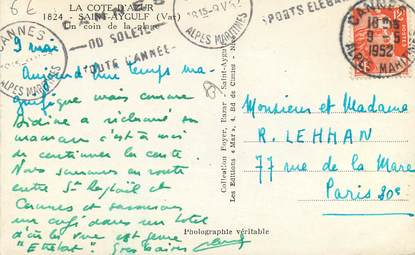 6E
LA COTE D'AZUR
1824 - SAINT-AYGULF (Var)
Un coin de la plage
CANNES
ALPES MARITIMES
DU SOLEIL
TOUTE L'ANNÉE
1815-9 V 52
ALPES MARITIMES
SPORTS ELEGAN
CANNES
18
9-5
1952
ALPES MARITIMES
9 mai
Aujourd'hui temps ma-
gnifique mais comme
a réclamé son
maman c'est à moi
de continuer la carte
Nous sommes en route
entre St Raphaël et
Cannes et savourons
un café dans un hotel
d'où la vue est genre
"Etretat". Gros baisers
Collection Foyer, Bazar - Saint-Aygulf
Les Editions "Mar", 4, Bd de Cimiez - Nice
Monsieur et Madame
R. LEHMAN
77 rue de la Mare
Paris 20e
Photographie véritable